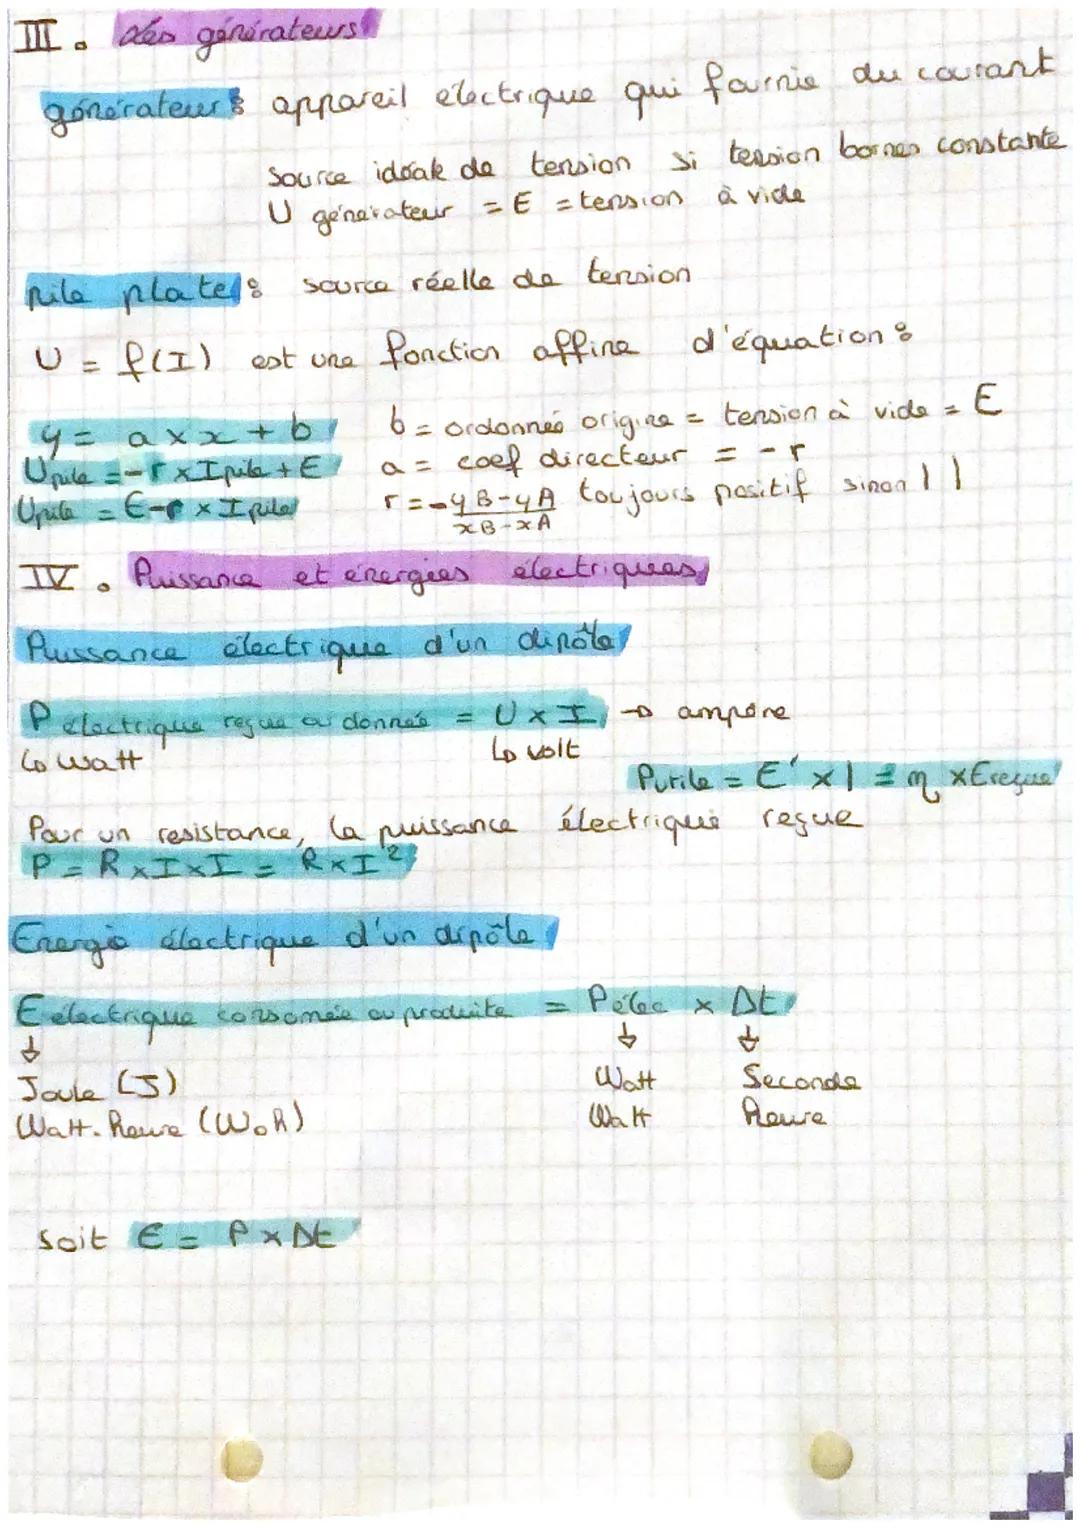 III. Les générateurs
générateur : appareil électrique qui farnie du courant
source idéale de tension si tension bornes constante
U générateur = E = tension à vide
pile plate : source réelle de tension
U = f(I) est une fonction affine d'équation :
y = a x x + b
b = ordonnée origine = tension à vide = E
Upile = -r x Ipile + E
a = coef directeur = -r
Upile = E-r x Ipile
r = - yB-yA / xB-xA toujours positif sinon | |
IV. Puissance et énergies électriques
Puissance électrique d'un dipôle
P électrique reçue ou donnée = U x I → ampère
↳ Watt ↳ volt
Putile = E' x I = η x Ereçue
Pour un resistance, la puissance électrique reçue
P = R x I x I = R x I²
Energie électrique d'un dipôle
E électrique consomée ou produite = Pélec x Δt
↓ ↓ ↓
Joule (J) Watt Seconde
Watt. heure (W.h) Watt heure
soit E = P x Δt